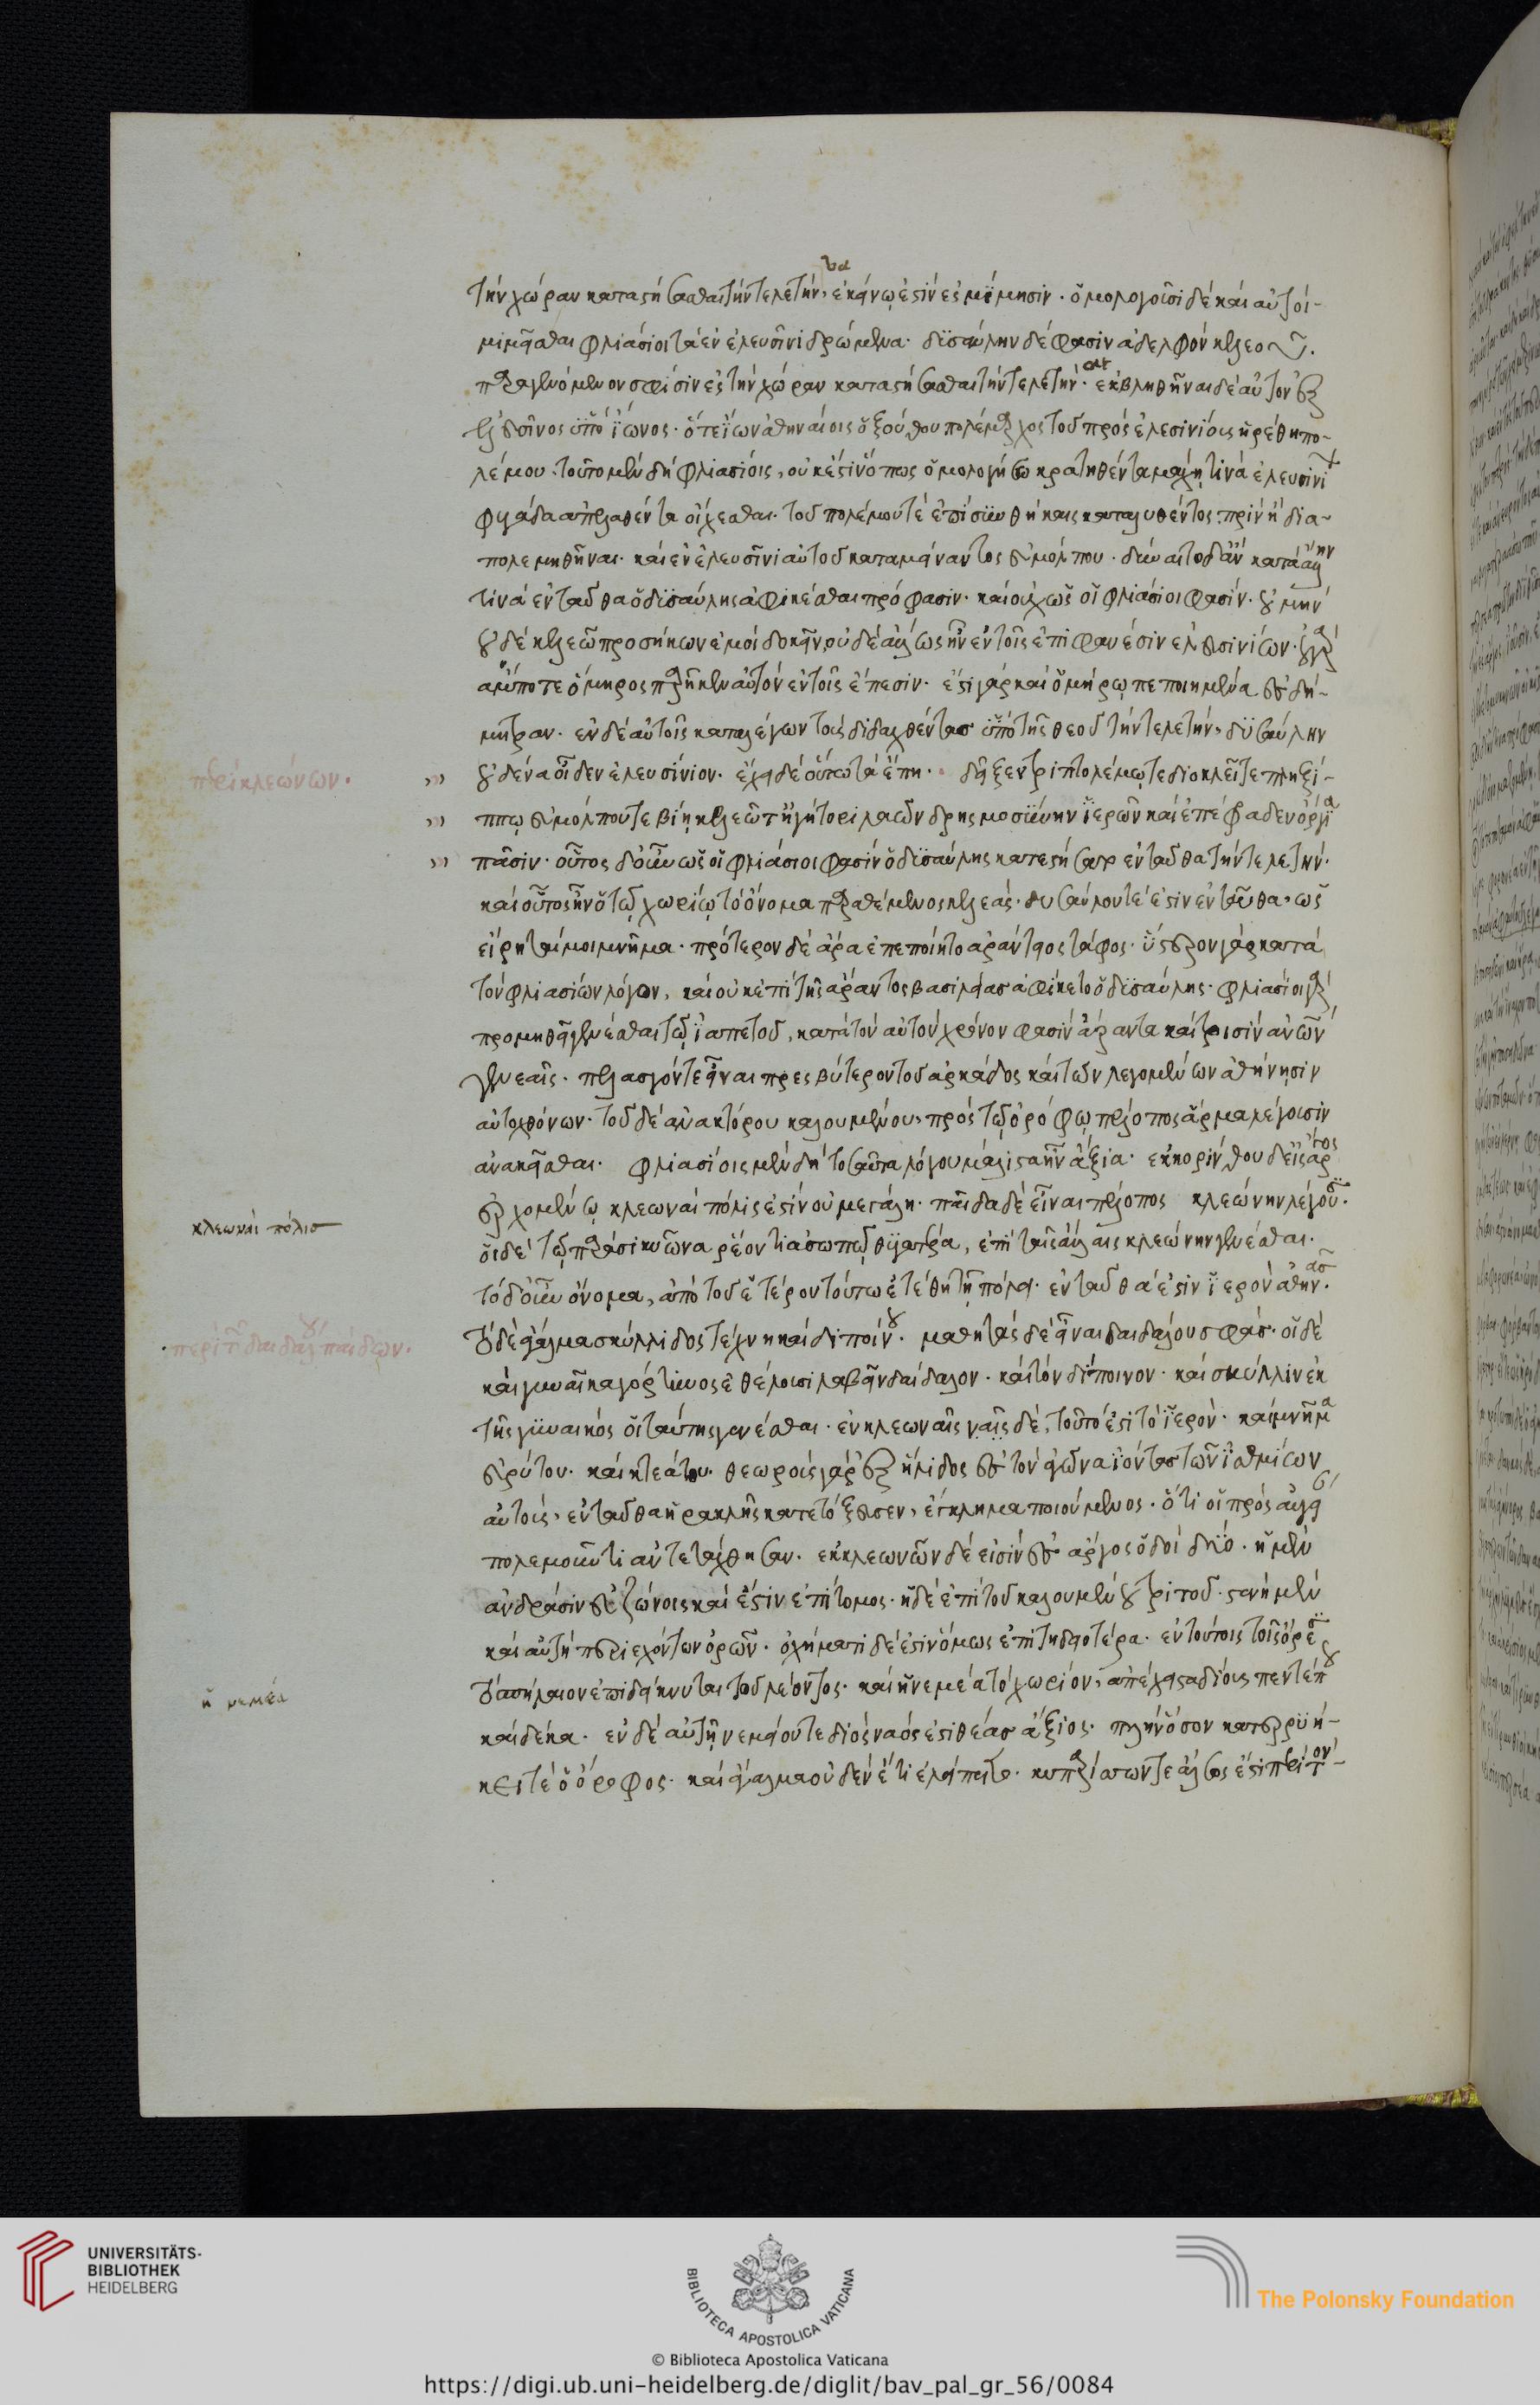 τὴν χώραν καταστήσασθαι τὴν τελετήν, ἐκείνῳ ἐστὶν ἐς μίμησιν. ὁμολογοῦσι δὲ καὶ αὐτοὶ
μιμεῖσθαι φλιάσιοι τὰ ἐν ἐλευσῖνι δρώμενα. δϊσαύλην δέ φασιν ἀδελφὸν κελεοῦ.
παραγενόμενον σφίσιν ἐς τὴν χώραν καταστήσασθαι τὴν τελετήν. ἐκβληθῆναι δὲ αὐτὸν ἐξ
ἐλευσῖνος ὑπὸ ἴωνος. ὅτε ἴων ἀθηναίοις ὁ ξούθου πολέμαρχος τοῦ πρὸς ἐλεσινίοις ἡρέθη πο-
λέμου. τοῦτο μὲν δὴ φλιασίοις, οὐκ ἔστιν ὅπως ὁμολογήσω κρατηθέντα μάχῃ τινὰ ἐλευσίνι
φυγάδα ἀπελαθέντα οἴχεσθαι. τοῦ πολέμου τὲ ἐπὶ συνθήκαις καταλυθέντος. πρὶν ἢ δια-
πολεμηθῆναι. καὶ ἐν ἐλευσῖνι αὐτοῦ καταμείναντος εὐμόλπου. δύναιτο δ' ἂν κατὰ ἄλλην
τινὰ ἐνταῦθα ὁ δϊσαύλης ἀφικέσθαι πρόφασιν. καὶ οὐχ ὡς οἱ φλιάσιοι φασίν. οὐ μὴν
οὐδὲ κελεῶ προσήκων ἐμοὶ δοκεῖν, οὐδὲ ἄλλως ἦν ἐν τοῖς ἐπιφανέσιν ἐλευσινίων. οὐ γὰρ
ἄν ποτε ὅμηρος παρῆκεν αὐτὸν ἐν τοῖς ἔπεσιν. ἔστι γὰρ καὶ ὁμήρῳ πεποιημένα ἐς δή-
μητραν. ἐν δὲ αὐτοῖς καταλέγων τοὺς διδαχθέντας ὑπὸ τῆς θεοῦ τὴν τελετήν, δϋσαύλην
περὶ κλεώνων.
οὐδένα οἶδεν ἐλευσίνιον. ἔχει δὲ οὕτω τὰ ἔπη. δεῖξεν τριπτολέμῳ τε διοκλεῖ τε πληξί-
ππῳ εὐμόλπου τε βίῃ κελεῶ τ' ἡγήτορι λαῶν δρησμοσύνην ἱερῶν καὶ ἐπέφαδεν ὄργια
πᾶσιν. οὗτος δ' οὖν ὡς οἱ φλιάσιοι φασὶν ὁ δϊσαύλης κατεστήσατο ἐνταῦθα τὴν τελετήν.
καὶ οὗτος ἦν ὁ τῷ χωρίῳ τὸ ὄνομα παραθέμενος κελεάς. δυσαύλου τέ ἐστιν ἐνταῦθα, ὡς
εἴρηταί μοι μνῆμα. πρότερον δὲ ἄρα ἐπεποίητο ἀράντειος τάφος. ὕστερον γὰρ κατὰ
τὸν φλιασίων λόγον, καὶ οὐκ ἐπὶ τῆς ἄραντος βασιλείας ἀφίκετο ὁ δϊσαύλης. φλιάσιοι γὰρ
προμηθεῖ γενέσθαι τῷ ἰαπετοῦ, κατὰ τὸν αὐτὸν χρόνον φασὶν ἄραντα καὶ τρισὶν ἀνθρώπων
γενεαῖς. πελασγόν τε εἶναι πρεσβύτερον τοῦ ἀρκάδος καὶ τῶν λεγομένων ἀθήνησιν
αὐτοχθόνων. τοῦ δὲ ἀνακτόρου καλουμένου, πρὸς τῷ ὀρόφῳ πέλοπος ἅρμα λέγουσιν
ἀνακεῖσθαι. φλιασίοις μὲν δὴ τοσαῦτα λόγου μάλιστα ἦν ἄξια. ἐκ κορίνθου δ' εἰς ἄργος
ἐρχομένῳ κλεωναὶ πόλις ἐστὶν οὐ μεγάλη. παῖδα δὲ εἶναι πέλοπος κλεώνην λέγουσι.
κλεωναὶ πόλισ
οἱ δὲ τῷ παρὰ σικυῶνα ῥέοντι ἀσωπῷ θυγατέρα, ἐπὶ ταῖς ἄλλαις κλεώνην γενέσθαι.
τὸ δ' οὖν ὄνομα, ἀπὸ τοῦ ἑτέρου τούτω ἐτέθη τῇ πόλει. ἐνταῦθά ἐστιν ἱερὸν ἀθηνᾶς.
περὶ τῶν δαιδάλου παίδων.
τὸ δὲ ἄγαλμα σκύλλιδος τέχνη καὶ διποίνου. μαθητὰς δὲ εἶναι δαιδάλου σφᾶς. οἱ δὲ
καὶ γυναῖκα γόρτυνος ἐθέλουσι λαβεῖν δαίδαλον. καὶ τὸν δίποινον. καὶ σκύλλιν ἐκ
τῆς γυναικός οἱ ταύτης γενέσθαι. ἐν κλεωναῖς ναῖς δὲ, τοῦτό ἐστι τὸ ἱερόν. καὶ μνῆμα
εὐρύτου. καὶ κτεάτου. θεωροὺς γὰρ ἐξ ἤλιδος ἐς τὸν ἀγῶνα ἰόντας τῶν ἰσθμίων
αὐτούς, ἐνταῦθα ἡρακλῆς κατετόξευσεν, ἔγκλημα ποιούμενος. ὅτι οἱ πρὸς αὐγεί
πολεμοῦντι ἀντετάχθησαν. ἐκ κλεωνῶν δέ εἰσιν ἐς ἄργος ὁδοὶ δύο. ἡ μὲν
ἀνδράσιν εὐζώνοις καὶ ἔστιν ἐπίτομος. ἡ δὲ ἐπὶ τοῦ καλουμένου τρητοῦ. στενὴ μὲν
καὶ αὐτὴ περιεχόντων ὀρῶν. ὀχήματι δέ ἐστιν ὅμως ἐπιτηδειοτέρα. ἐν τούτοις τοῖς ὄρεσι
τὸ σπήλαιον ἐπιδείκνυται τοῦ λέοντος. καὶ ἡ νεμέα τὸ χωρίον, ἀπέχει σταδίους πέντε που
ἡ νεμέα
καὶ δέκα. ἐν δὲ αὐτῇ νεμείου τε διὸς ναός ἐστι θέας ἄξιος. πλὴν ὅσον κατερρυή-
κει τὲ ὁ ὄροφος. καὶ ἄγαλμα οὐδὲν ἔτι ἐλείπετο. κυπαρίσσων τε ἄλσος ἐστὶ περὶ τὸν
UNIVERSITÄTS-
BIBLIOTHEK
HEIDELBERG
BIBLIOTECA APOSTOLICA VATICANA
The Polonsky Foundation
© Biblioteca Apostolica Vaticana
https://digi.ub.uni-heidelberg.de/diglit/bav_pal_gr_56/0084